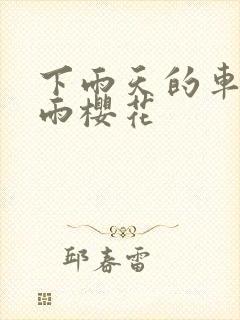 下雨天的車
雨櫻花
邱春雷